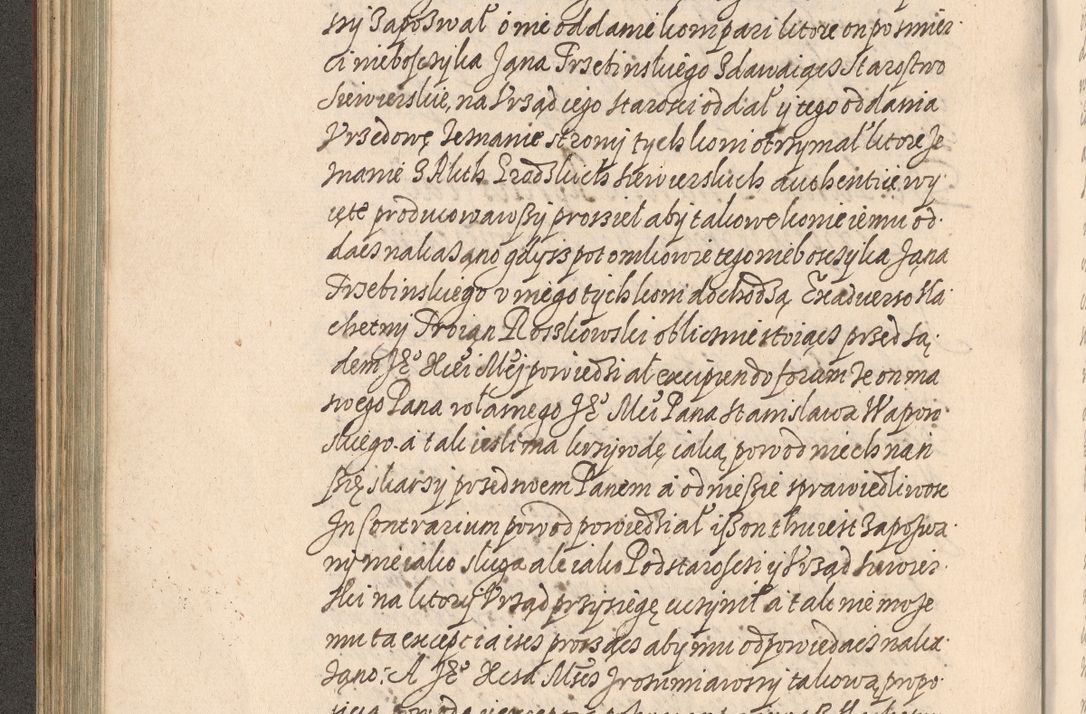 sny Zapozwał o nie oddanie koni pari ktore on po smier
ci nieboszczyka Jana Trzebinskiego zdawaiącz Starostwo
Siewierskie, na Vrząd iego starosci oddał y tego oddania
Vrzedowę Zeznanie strony tych koni otrzymał ktore Ze
znanie z Akth Grodskich Siewierskich authentice wy
ięte producowawszy prosieł aby takowe konie iemu od
dacz nakazano gdysz potomkowie tego nieboszczyka Jana
Trzebinskiego v niego tych koni dochodzą Exaduerso Sla
chetny Troian Roszkowski obliczne stoiącz przed Są
dem Je° Xcei Mei powiedział excipiendo forum Ze on ma
swego Pana własnego Je° Mci Pana Stanislawa Wapow
skiego a tak iesli ma krzywdę iaką powod niech nań
się skarzy przed swem Panem a odniesie sprawiedliwosc
In Contrarium powod powiedział isz on thu iest Zapozwa
ny nie iako sługa ale iako Podstarosci y Vrząd Siewier
ski na ktory Vrząd przysięgę uczynił a tak nie może
mu ta excepcia iscz prosząc aby mu odpowiedacz naka
zano: A Je° Xcza Mcz Zrozumiawszy takową propo